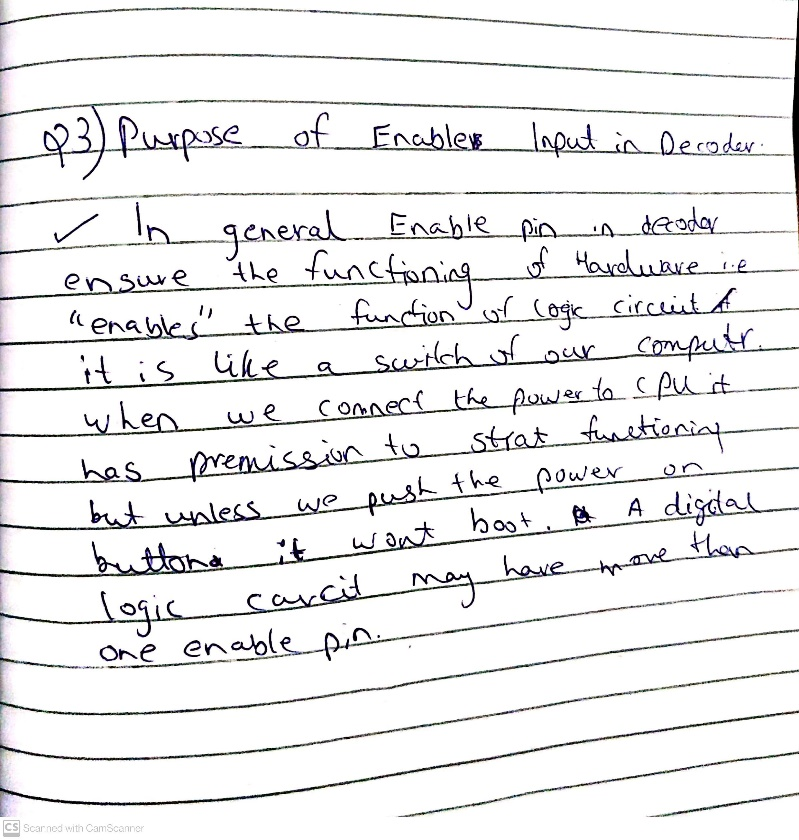 Q3) Purpose of Enables Input in Decoder.
✓ In general Enable pin in decoder
ensure the functioning of Hardware i.e
"enables" the function of logic circuit
it is like a switch of our computr.
when we connect the power to CPU it
has premission to strat functioning
but unless we push the power on
button it wont boot. A digital
logic carcit may have more than
one enable pin.
CS Scanned with CamScanner